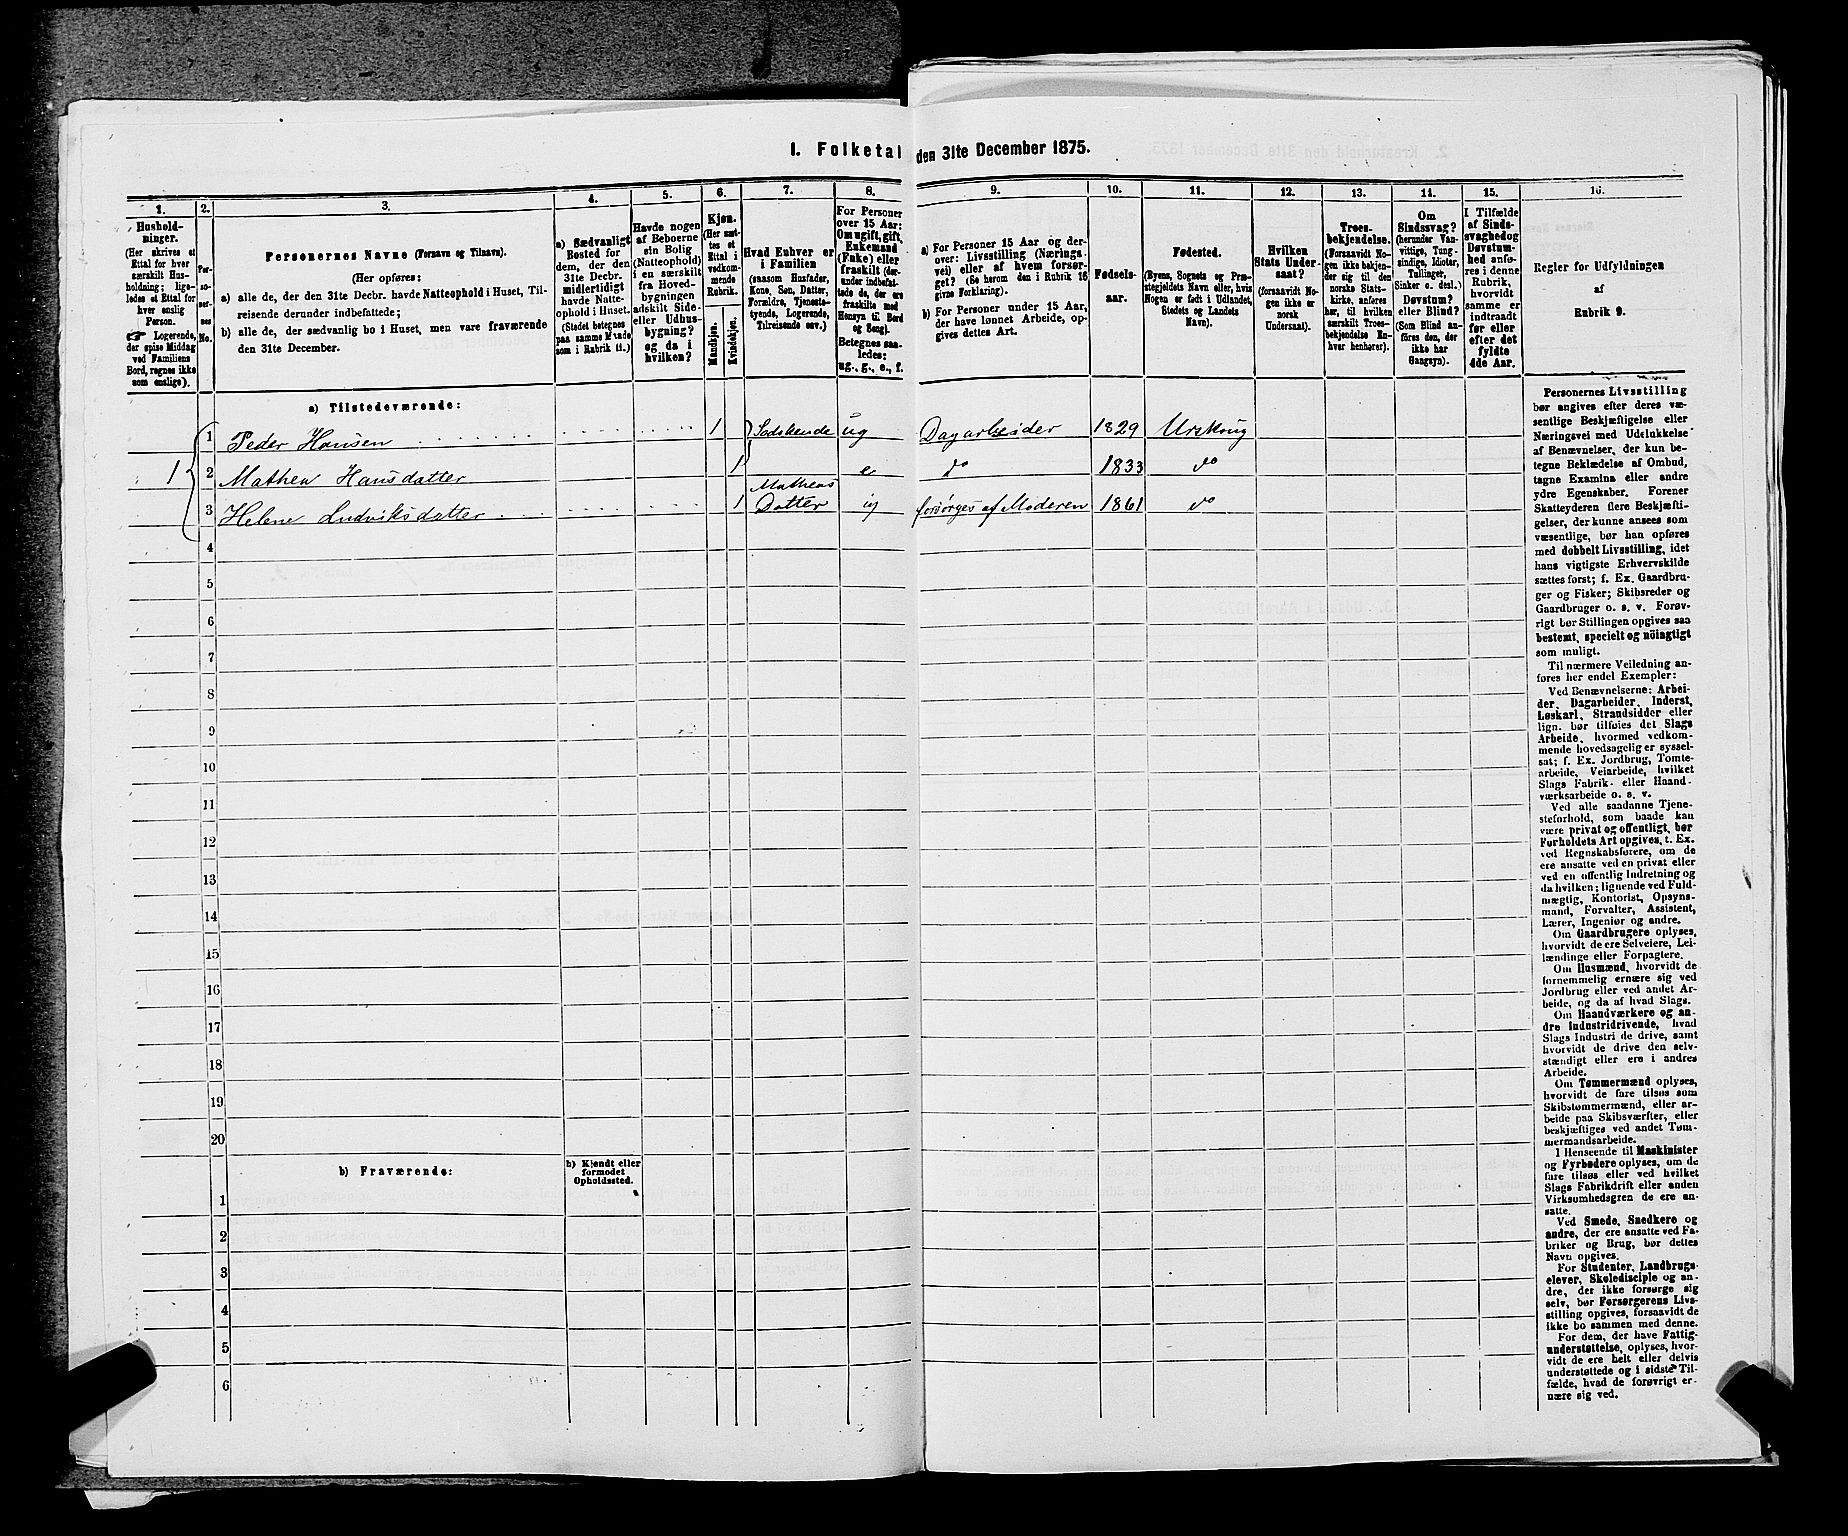 1. Folketal den 31te December 1875.
1.
2.
3.
4.
5.
6.
7.
8.
9.
10.
11.
12.
13.
14.
15.
16.
Hushold-
ninger.
(Her skrives et
Ettal for hver
særskilt Hus-
holdning; lige-
ledes et Ettal for
hver enslig
Person.
☞ Logerende,
der spise Middag
ved Familiens
Bord, regnes ikke
som enslige).
Per-
so-
ner-
nes
No.
Personernes Navne (Fornavn og Tilnavn).
(Her opføres:
a) alle de, der den 31te Decbr. havde Natteophold i Huset, Til-
reisende derunder indbefattede;
b) alle de, der sædvanlig bo i Huset, men vare fraværende
den 31te December.
a) Sædvanligt
Bosted for
dem, der den
31te Decbr.
midlertidigt
havde Natte-
ophold i Huset.
(Stedet betegnes
paa samme Maade
som i Rubrik 11.)
Havde nogen
af Beboerne
sin Bolig
(Natteophold)
i en særskilt
fra Hoved-
bygningen
adskilt Side-
eller Udhus-
bygning?
og da i
hvilken?
Kjøn.
(Her sæt-
tes et
Ettal i
vedkom-
mende
Rubrik.
Mandkjøn.
Kvindekjøn.
Hvad Enhver er
i Familien
(saasom Husfader,
Kone, Søn, Datter,
Forældre, Tjeneste-
tyende, Logerende,
Tilreisende osv.)
For Personer
over 15 Aar:
Om ugift, gift,
Enkemand
(Enke) eller
fraskilt (der-
under indbefat-
tede de, der ere
fraskilte med
Hensyn til Bord
og Seng).
Betegnes saa-
ledes:
ug., g., e., f.
a) For Personer 15 Aar og der-
over: Livsstilling (Nærings-
vei) eller af hvem forsør-
get? (Se herom den i Rubrik 16
givne Forklaring).
b) For Personer under 15 Aar,
der have lønnet Arbeide, op-
gives dettes Art.
Fødsels-
aar.
Fødested.
(Byens, Sognets og Præ-
stegjeldets Navn eller, hvis
Nogen er født i Udlandet,
Stedets og Landets
Navn).
Hvilken
Stats Under-
saat?
(forsaavidt No-
gen ikke er
norsk
Undersaat).
Troes-
bekjendelse.
(Forsaavidt No-
gen ikke bekjen-
der sig til den
norske Stats-
kirke, anføres
her, til hvilken
særskilt Troes-
bekjendelse En-
hver henhører).
Om
Sindssvag?
(herunder Van-
vittige, Tung-
sindige, Idioter,
Tullinger,
Sinker o. desl.)
Døvstum?
eller Blind?
(Som Blind an-
føres den, der
ikke har
Gangsyn).
I Tilfælde
af Sinds-
svaghed og
Døvstum-
hed anfø-
res i denne
Rubrik,
hvorvidt
samme er
indtraadt
før eller
efter det
fyldte
4de Aar.
Regler for Udfyldningen
af
Rubrik 9.
a) Tilstedeværende:
1
1 Peder Hansen 1 Sødskende ug Dagarbeider 1829 Urskoug
2 Mathea Hansdatter 1 e do 1833 do
3 Helene Ludviksdatter 1 Matheas
Datter ug forsørges af Moderen 1861 do
4
5
6
7
8
9
10
11
12
13
14
15
16
17
18
19
20
b) Fraværende:
b) Kjendt eller
formodet
Opholdssted.
1
2
3
4
5
6
Personernes Livsstilling
bør angives efter deres væ-
sentlige Beskjæftigelse eller
Næringsvei med Udelukkelse
af Benævnelser, der kun be-
tegne Beklædelse af Ombud,
tagne Examina eller andre
ydre Egenskaber. Forener
Skatteyderen flere Beskjæfti-
gelser, der kunne ansees som
væsentlige, bør han opføres
med dobbelt Livsstilling, idet
hans vigtigste Erhvervskilde
sættes først; f. Ex. Gaardbru-
ger og Fisker; Skibsreder og
Gaardbruger o. s. v. Forøv-
rigt bør Stillingen opgives saa
bestemt, specielt og nöiagtigt
som muligt.
Til nærmere Veiledning an-
føres her endel Exempler:
Ved Benævnelserne: Arbei-
der, Dagarbeider, Inderst,
Løskarl, Strandsidder eller
lign. bør tilføies det Slags
Arbeide, hvormed vedkom-
mende hovedsagelig er syssel-
sat; f. Ex. Jordbrug, Tomte-
arbeide, Veiarbeide, hvilket
Slags Fabrik- eller Haand-
værksarbeide o. s. v.
Ved alle saadanne Tjene-
steforhold, som baade kan
være privat og offentligt, bør
Forholdets Art opgives, t. Ex.
ved Regnskabsførere, om de
ere ansatte ved en privat eller
ved en offentlig Indretning og
da hvilken; lignende ved Fuld-
mægtig, Kontorist, Opsyns-
mand, Forvalter, Assistent,
Lærer, Ingeniør og andre.
Om Gaardbrugere oplyses,
hvorvidt de ere Selveiere, Lei-
lændinge eller Forpagtere.
Om Husmænd, hvorvidt de
fornemmelig ernære sig ved
Jordbrug eller ved andet Ar-
beide, og da af hvad Slags.
Om Haandværkere og an-
dre Industridrivende, hvad
Slags Industri de drive, samt
hvorvidt de drive den selv-
stændigt eller ere i andres
Arbeide.
Om Tømmermænd oplyses,
hvorvidt de fare tilsøs som
Skibstømmermænd, eller ar-
beide paa Skibsværfter, eller
beskjæftiges ved andet Tøm-
mermandsarbeide.
I Henseende til Maskinister
og Fyrbødere oplyses, om de
fare tilsøs eller ved hvilket
Slags Fabrikdrift eller anden
Virksomhedsgren de ere an-
satte.
Ved Smede, Snedkere og
andre, der ere ansatte ved Fa-
briker og Brug, bør dettes
Navn opgives.
For Studenter, Landbrugs-
elever, Skoledisciple og an-
dre, der ikke forsørge sig
selv, bør Forsørgerens Livs-
stilling opgives, forsaavidt de
ikke bo sammen med denne.
For dem, der have Fattig-
understøttelse, oplyses, hvor-
vidt de ere helt eller delvis
understøttede og i sidste Til-
fælde, hvad de forøvrigt er-
nære sig ved.